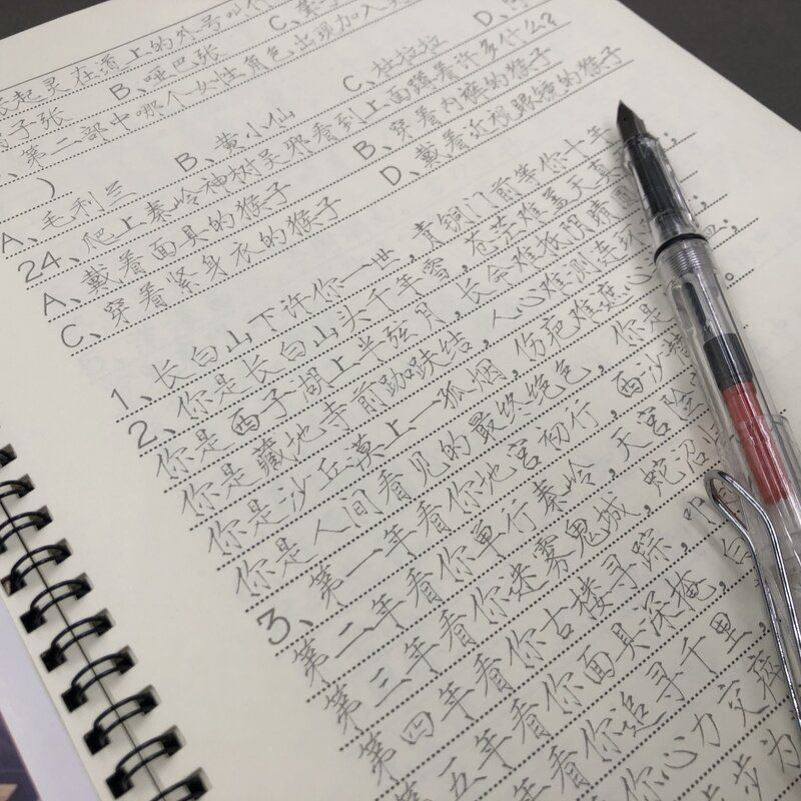 张起灵在道上的外号叫什
C、
瞎子张 B、哑巴张 D、
、第二部中哪个女性角色出现加入
)
A、毛利兰 B、黄小仙 C、杜拉拉
24、爬上秦岭神树吴邪看到上面蹲着许多什么?
A、戴着面具的猴子 B、穿着内裤的猴子
C、穿着紧身衣的猴子 D、戴着近视眼镜的猴子
1、长白山下许你一世,青铜门前等你十年
2、你是长白山头千年雪,苍茫难盖天真
你是西子湖上半弦月,长命难抵阴晴
你是藏地寺前跏趺结,人心难测连环
你是沙丘漠上一孤烟,伤疤难遮心
你是人间看见的最终绝色,你是
3、第一年看你地宫初行,西沙
第二年看你单行秦岭,天宫
第三年看你迷雾鬼城,蛇沼
第四年看你古楼寻踪,
第五年看你面具深掩,
年看你追寻千里,
你心力交瘁
步为